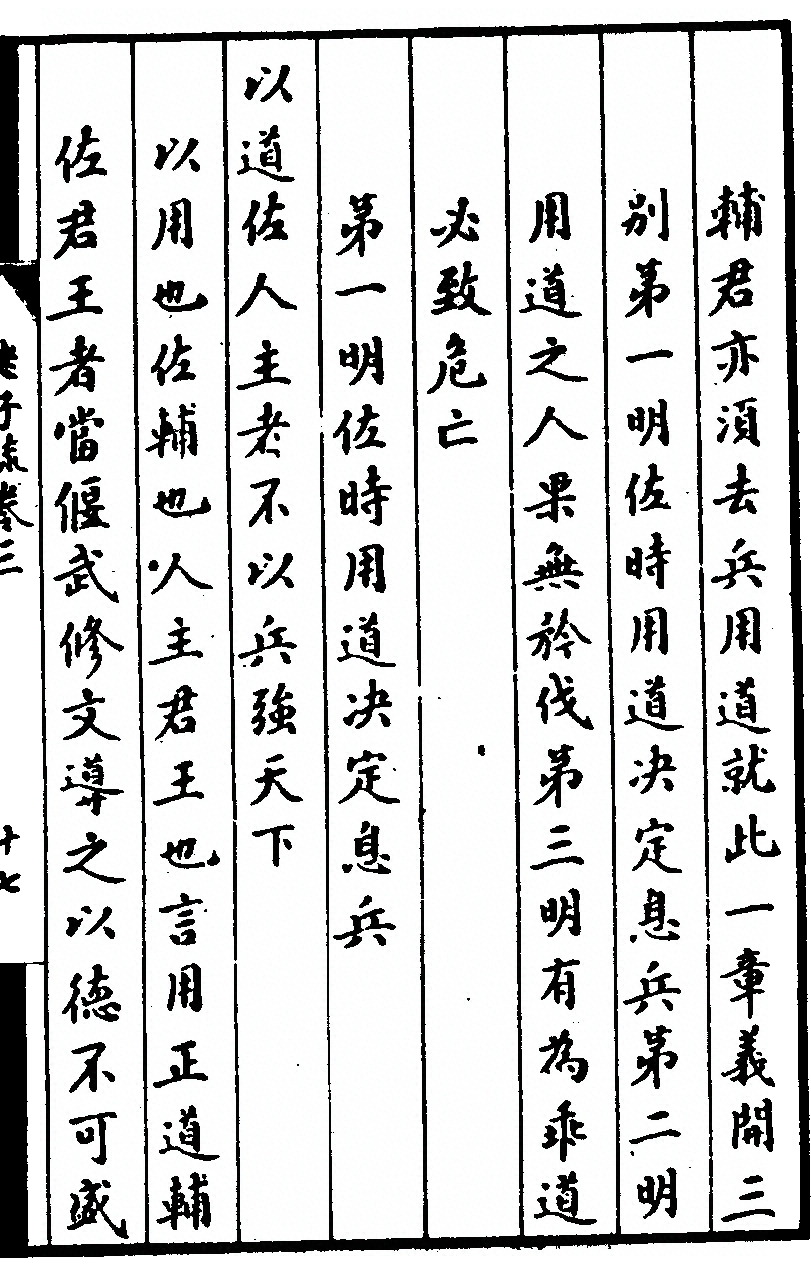 輔君亦須去兵用道就此一章義開三
別第一明佐時用道決定息兵第二明
用道之人果無矜伐第三明有為乖道
必致危亡
第一明佐時用道決定息兵
以道佐人主者不以兵強天下
以用也佐輔也人主君王也言用正道輔
佐君王者當偃武修文導之以德不可盛
老子疏卷三
十七